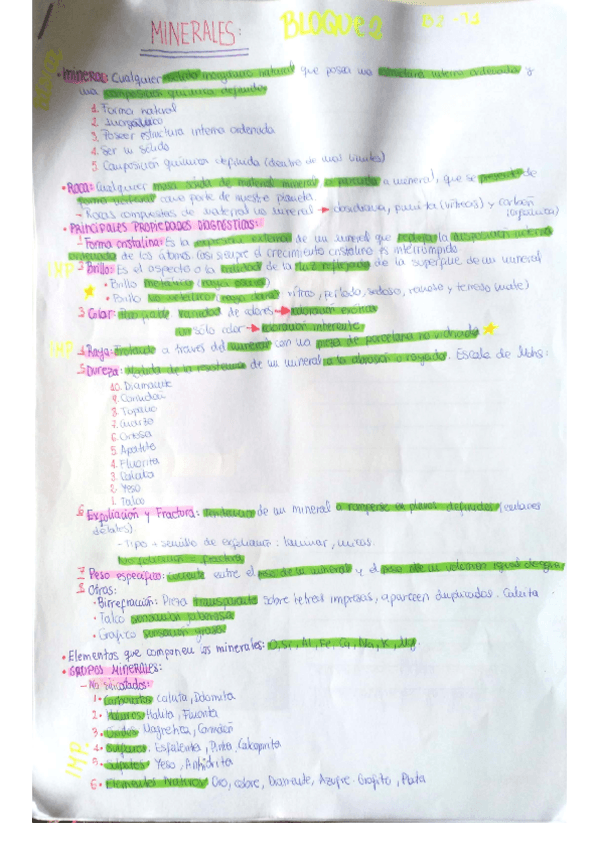 MINERALES:
BLOQUE 2
• MINERAL: Cualquier sólido inorgánico natural que posea una estructura interna ordenada y
una composición química definida
1. Forma natural
2. Inorgánico
3. Poseer estructura interna ordenada
4. Ser un sólido
5. Composición química definida (dentro de unos límites)
• ROCA: Cualquier masa sólida de material mineral, o parecido a mineral, que se presenta de
forma natural como parte de nuestro planeta.
- Rocas compuestas de material no mineral → obsidiana, pumita (vítreos) y carbón
(orgánica)
• PRINCIPALES PROPIEDADES DIAGNÓSTICAS:
1. Forma cristalina: Es la expresión externa de un mineral que refleja la disposición interna
ordenada de los átomos. Casi siempre el crecimiento cristalino es interrumpido
IMP 2. Brillo: Es el aspecto o la calidad de la luz reflejada de la superficie de un mineral
• Brillo metálico
• Brillo no metálico vítreo, perlado, sedoso, resinoso y terroso (mate)
3. Color: variedad de colores → coloración exótica
un sólo color → coloración inherente
IMP 4. Raya: Frotando a través del mineral con una pieza de porcelana no vidriada
5. Dureza: Medida de la resistencia de un mineral a la abrasión o rayado. Escala de Mohs:
10. Diamante
9. Corindón
8. Topacio
7. Cuarzo
6. Ortosa
5. Apatito
4. Fluorita
3. Calcita
2. Yeso
1. Talco
6. Exfoliación y Fractura: Tendencia de un mineral a romperse en planos definidos (enlaces
débiles).
- Tipo + sencillo de exfoliación: laminar, micas.
No exfoliación = fractura
7. Peso específico: Cociente entre el peso de un mineral y el peso de un volumen igual de agua
8. Otras:
• Birrefracción: Pieza transparente sobre letras impresas, aparecen duplicadas. Calcita
• Talco sensación jabonosa
• Grafito sensación grasa
• Elementos que componen los minerales: O, Si, Al, Fe, Ca, Na, K, Mg.
• GRUPOS MINERALES:
- No silicatados:
1. Carbonatos Calcita, Dolomita
2. Haluros Halita, Fluorita
3. Óxidos Magnetita, Corindón
IMP. 4. Sulfuros Esfalerita, Pirita, Calcopirita
5. Sulfatos Yeso, Anhidrita
6. Elementos Nativos Oro, cobre, Diamante, Azufre, Grafito, Plata